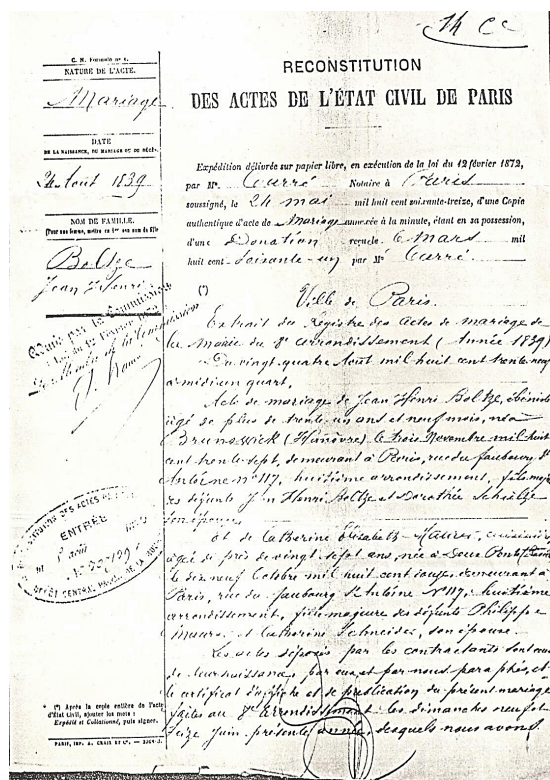 14 CC
C. N. Formule nº 1.
NATURE DE L'ACTE.
Mariage
DATE
DE LA NAISSANCE, DU MARIAGE OU DU DÉCÈS.
24 Août 1839
NOM DE FAMILLE.
(Pour une femme, mettre en 1re son nom de fille
Boltze
Jean Henri
Admis par la Commission
Loi du 12 Février 1872
Le Membre de la Commission
ENTRÉE
DÉPÔT CENTRAL, PALAIS DE LA
(*) Après la copie entière de l'acte
d'état civil, ajouter les mots :
Expédié et Collationné, puis signer.
PARIS, IMP. A. CHAIX ET Cie.
RECONSTITUTION
DES ACTES DE L'ÉTAT CIVIL DE PARIS
Expédition délivrée sur papier libre, en exécution de la loi du 12 février 1872,
par Me Carré Notaire à Paris
soussigné, le 24 mai mil huit cent soixante-treize, d'une Copie
authentique d'acte de Mariage annexée à la minute, étant en sa possession,
d'une Donation reçu le 6 Mars mil
huit cent soixante-un par Me Carré
(*)
Ville de Paris.
Extrait du Registre des Actes de mariage de
la Mairie du 8e arrondissement (Année 1839)
Du vingt quatre Août mil huit cent trente neuf
à midi un quart,
Acte de mariage de Jean Henri Boltze, ébéniste
âgé de plus de trente un ans et neuf mois, né à
Brunswick (Hanovre) le trois Novembre mil huit
cent sept, demeurant à Paris, rue du faubourg St
Antoine nº 117, huitième arrondissement, fils majeur
des défunts Jean Henri Boltze et Dorothée
son épouse
Et de Catherine Elisabeth Maurer, cuisinière
âgée de près de vingt sept ans, née à Deux Ponts
le dix neuf Octobre mil huit cent douze, demeurant à
Paris, rue du faubourg St Antoine Nº 119, huitième
arrondissement, fille majeure des défunts Philippe
Maurer et Catherine Schneider, son épouse.
Les actes déposés par les contractants sont ceux
de leur naissance, par eux et par nous paraphés, et
le certificat d'affiche et de publication du présent mariage
faites au 8e Arrondissement les dimanches neuf et
Seize Juin présente année, desquels nous avons